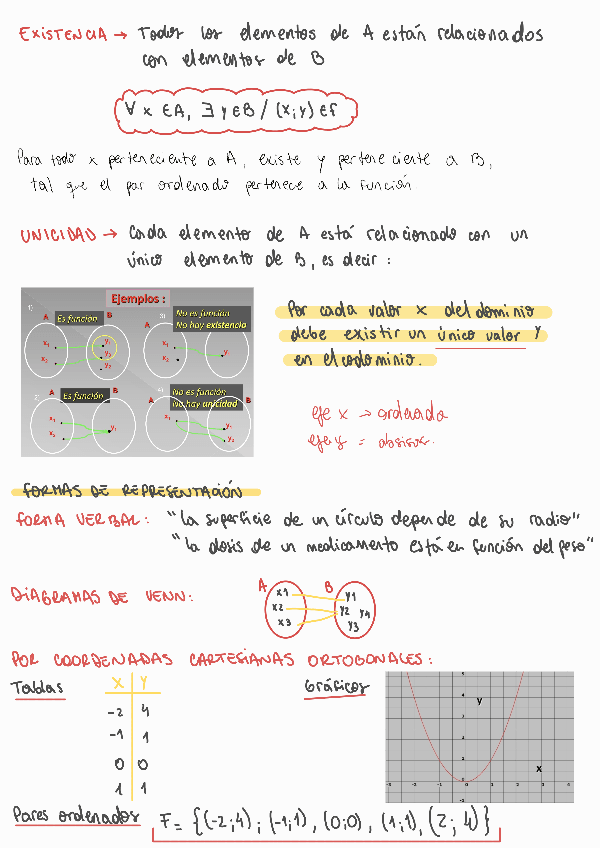 EXISTENCIA → Todos los elementos de A están relacionados
con elementos de B
∀ x ∈ A, ∃ y ∈ B / (x;y) ∈ f
Para todo x perteneciente a A, existe y perteneciente a B,
tal que el par ordenado pertenece a la función.
UNICIDAD → Cada elemento de A está relacionado con un
único elemento de B, es decir :
Ejemplos :
1)
A
Es función
B
x₁
x₂
y₁
y₂
y₃
3)
No es función
No hay existencia
A
x₁
x₂
y₁
2)
A
Es función
B
x₁
x₂
y₁
4)
No es función
No hay unicidad
A
B
x₁
y₁
y₂
Por cada valor x del dominio
debe existir un único valor y
en el codominio.
eje x → ordenada
eje y = absisa.
FORMAS DE REPRESENTACIÓN
FORMA VERBAL: "la superficie de un círculo depende de su radio"
"la dosis de un medicamento está en función del peso"
DIAGRAMAS DE VENN:
A
B
x1
x2
x3
y1
y2
y4
y3
POR COORDENADAS CARTESIANAS ORTOGONALES:
Tablas
x y
-2 4
-1 1
0 0
1 1
Gráficos
y
x
Pares ordenados F = {(-2;4); (-1;1), (0;0), (1;1), (2; 4)}